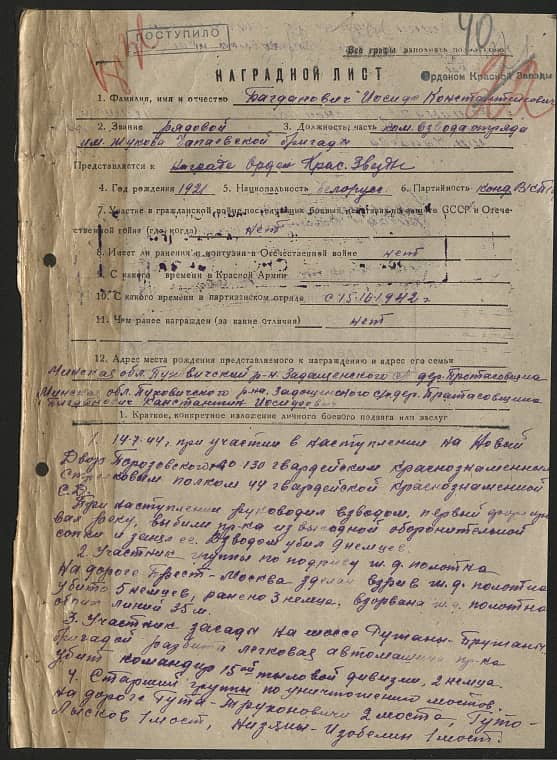 ПОСТУПИЛО
40
Все графы заполнять
НАГРАДНОЙ ЛИСТ
Орденом Красной Звезды
1. Фамилия, имя и отчество Багданович Иосиф Константинович
2. Звание рядовой 3. Должность, часть ком. взвода отряда
им. Жукова Чапаевской бригады
Представляется к награде Орден Крас. Звезды
4. Год рождения 1921 5. Национальность белорус 6. Партийность канд. ВКП
7. Участие в гражданской войне, последующих боевых действиях по защите СССР и Отече-
ственной войне (где, когда) нет
8. Имеет ли ранения и контузии в Отечественной войне нет
9. С какого времени в Красной Армии
10. С какого времени в партизанском отряде с 15.10.1942 г
11. Чем ранее награжден (за какие отличия) нет
12. Адрес места рождения представляемого к награждению и адрес его семьи
Минская обл. Пуховичский р-н. дер. Протасовщина
Минская обл. Пуховичского р-на дер. Пратасовщина
Багданович Канстантин Иосифович
1. Краткое, конкретное изложение личного боевого подвига или заслуг
1. 14.7.44, при участии в наступлении на Новый
Двор Порозовского, со 130 гвардейским краснознаменным
стрелковым полком 44 гвардейской краснознаменной
С.Д.
При наступлении руководил взводом, первый
реку, выбили пр-ка из выгодной оборонительной
сопки и ее. Взводом убил 9 немцев.
2. Участник группы по подрыву ж.д. полотна
на дороге Брест-Москва сделан взрыв ж.д. полотна
убито 5 немцев, ранено 3 немца, взорвана ж.д. полотна
обоих линий 35 м.
3. Участник засады на шоссе Ружаны-Пружаны
бригадой разбита легковая автомашина пр-ка
убит командир 15ой тыловой дивизии, 2 немца.
4. Старший группы по уничтожению мостов.
На дороге Гута- 2 моста, Гуто-
Лысков 1 мост, Изобелин 1 мост.